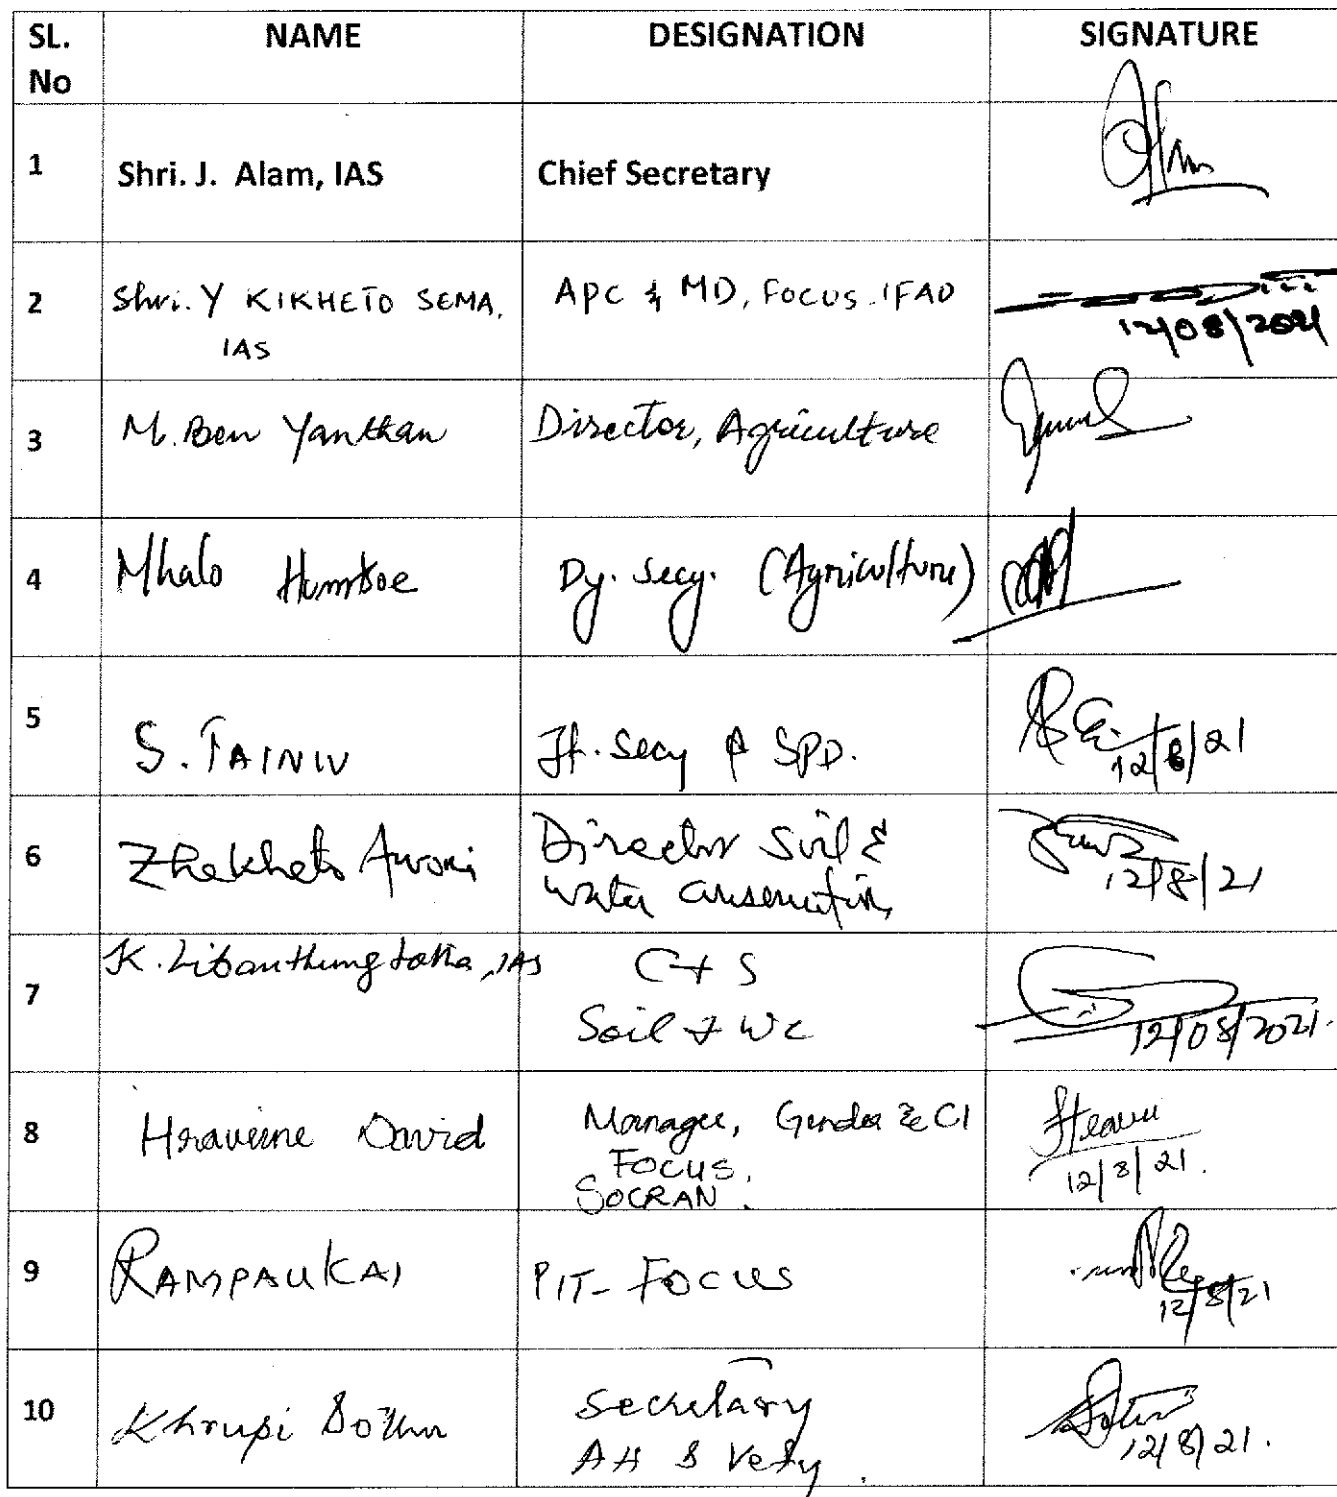 SL. No NAME DESIGNATION SIGNATURE
1 Shri. J. Alam, IAS Chief Secretary
2 Shri. Y KIKHETO SEMA, APC & MD, FOCUS-IFAD
IAS 12/08/2021
3 M. Ben Yanthan Director, Agriculture
4 Mhalo Humtsoe Dy. Secy. (Agriculture)
5 S. TAINIU Jt. Secy & SPD. 12/8/21
6 Zhekheto Awomi Director Soil &
water conservation, 12/8/21
7 K. Libanthung Lotha, IAS C & S
Soil & WC 12/08/2021.
8 David Manager, Gender & CI
FOCUS, 12/8/21.
SOCRAN.
9 RAMPAUKAI PIT- FOCUS 12/8/21
10 Secretary
AH & Vety. 12/8/21.